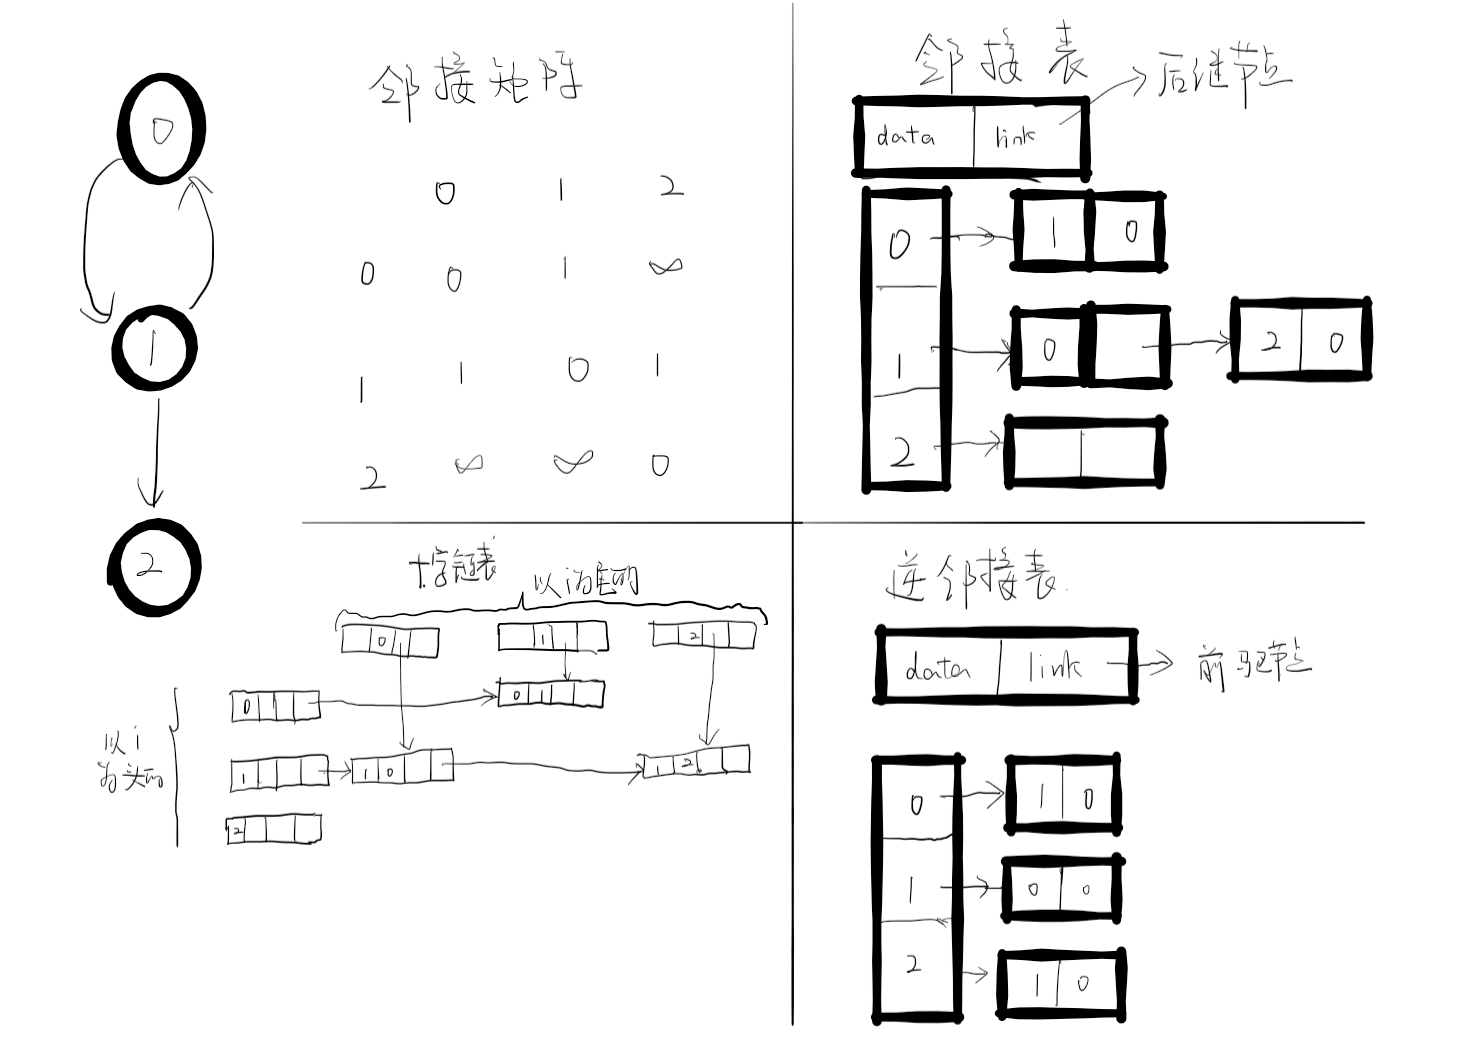 0
1
2
邻接矩阵
0 1 2
0 0 1 ∞
1 1 0 1
2 ∞ ∞ 0
邻接表
data link
后继节点
0 1 0
1 0 2 0
2
十字链表
以i为尾的
0 1 2
0 0 1
以i
为头的
1 1 0 1 2
2
逆邻接表
data link
前驱节点
0 1 0
1 0 0
2 1 0